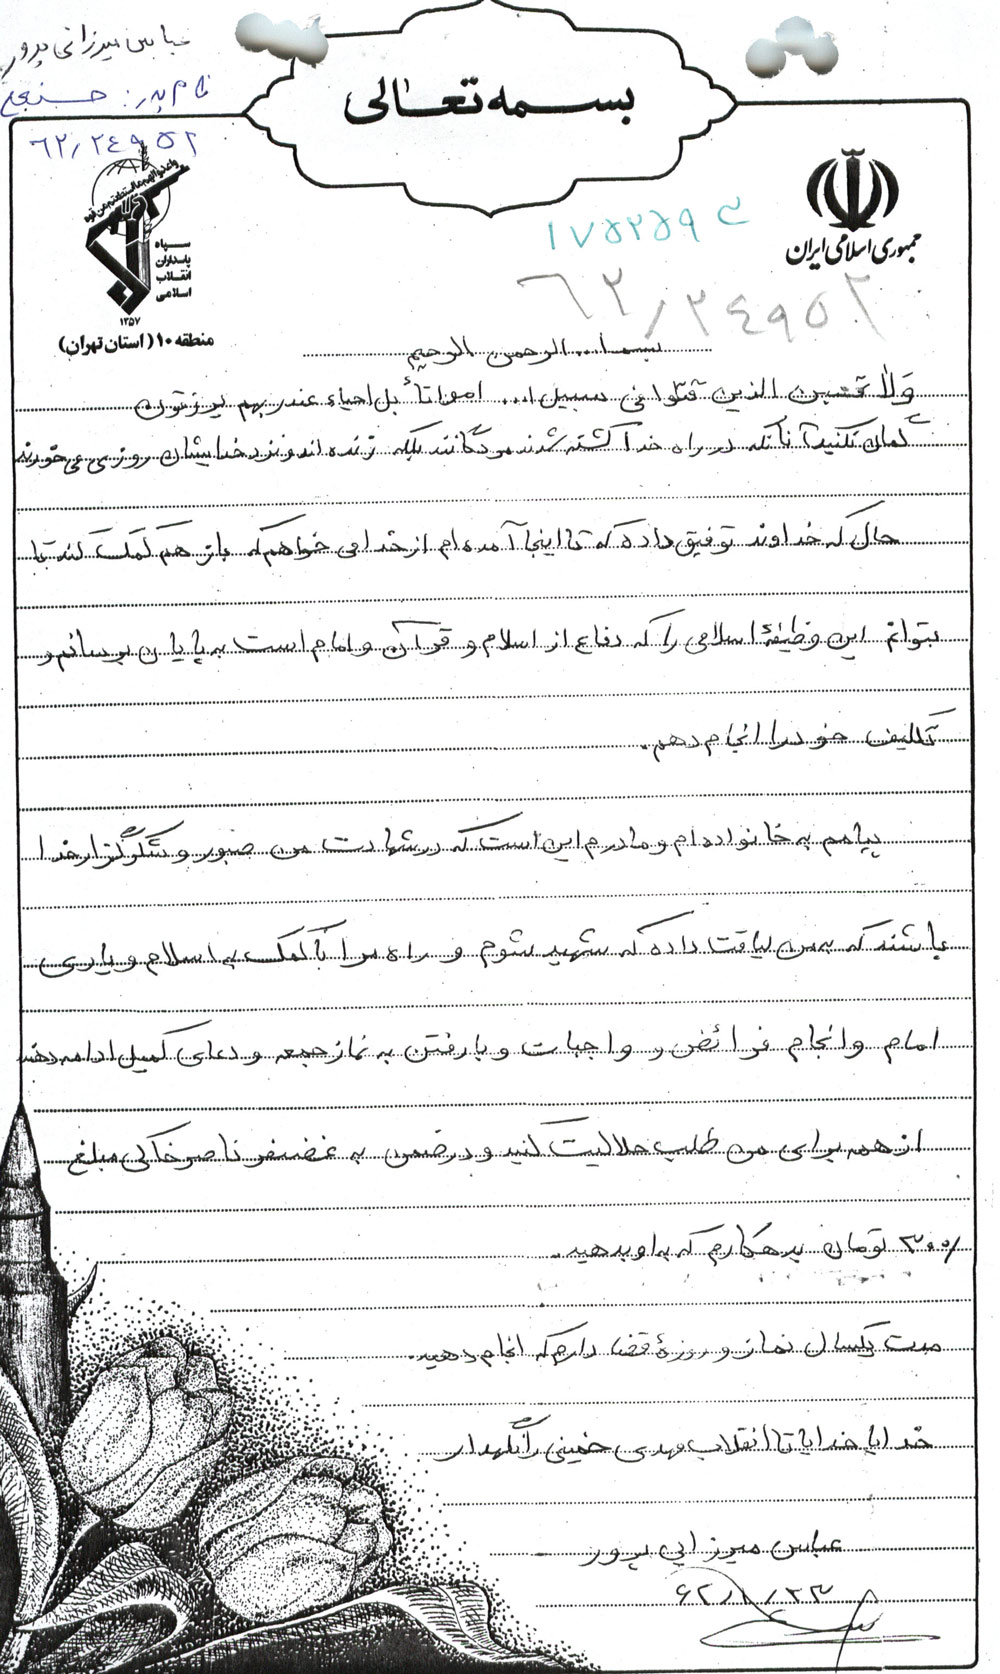 عباس میرزائی پرور
نام پدر:
۶۲/۲۴۹۵۲
بسمه تعالی
واعدوا لهم ما استطعتم من قوه
سپاه
پاسداران
انقلاب
اسلامی
۱۳۵۷
منطقه ۱۰ (استان تهران)
جمهوری اسلامی ایران
۱۷۵۲۵۹۴
۶۲/۲۴۹۵۲
بسم ا... الرحمن الرحیم
وَلا تحسبن الذین قتلوا فی سبیل ا... امواتاً بل احیاء عند ربهم یرزقون
گمان نکنید آنانکه در راه خدا کشته شدند مردگانند بلکه زنده اند و نزد خدایشان روزی می خورند
حال که خداوند توفیق داده که تا اینجا آمده ام از خدا می خواهم که باز هم کمک کند تا
بتوانم این وظیفهٔ اسلامی را که دفاع از اسلام و قرآن و امام است به پایان برسانم و
تکلیف خود را انجام دهم.
پیامم به خانواده ام و مادرم این است که در شهادت من صبور و شکرگزار خدا
باشند که به من لیاقت داده که شهید شوم و راه مرا با کمک به اسلام و یاری
امام و انجام فرائض و واجبات و با رفتن به نماز جمعه و دعای کمیل ادامه دهند
از همه برای من طلب حلالیت کنید و در ضمن به غضنفر ناصرخاکی مبلغ
۳۰۰/ تومان بدهکارم که به او بدهید.
مدت یکسال نماز و روزهٔ قضا دارم که انجام دهید.
خدایا خدایا تا انقلاب مهدی خمینی را نگهدار
عباس میرزایی پرور
۶۲/۱/۲۳